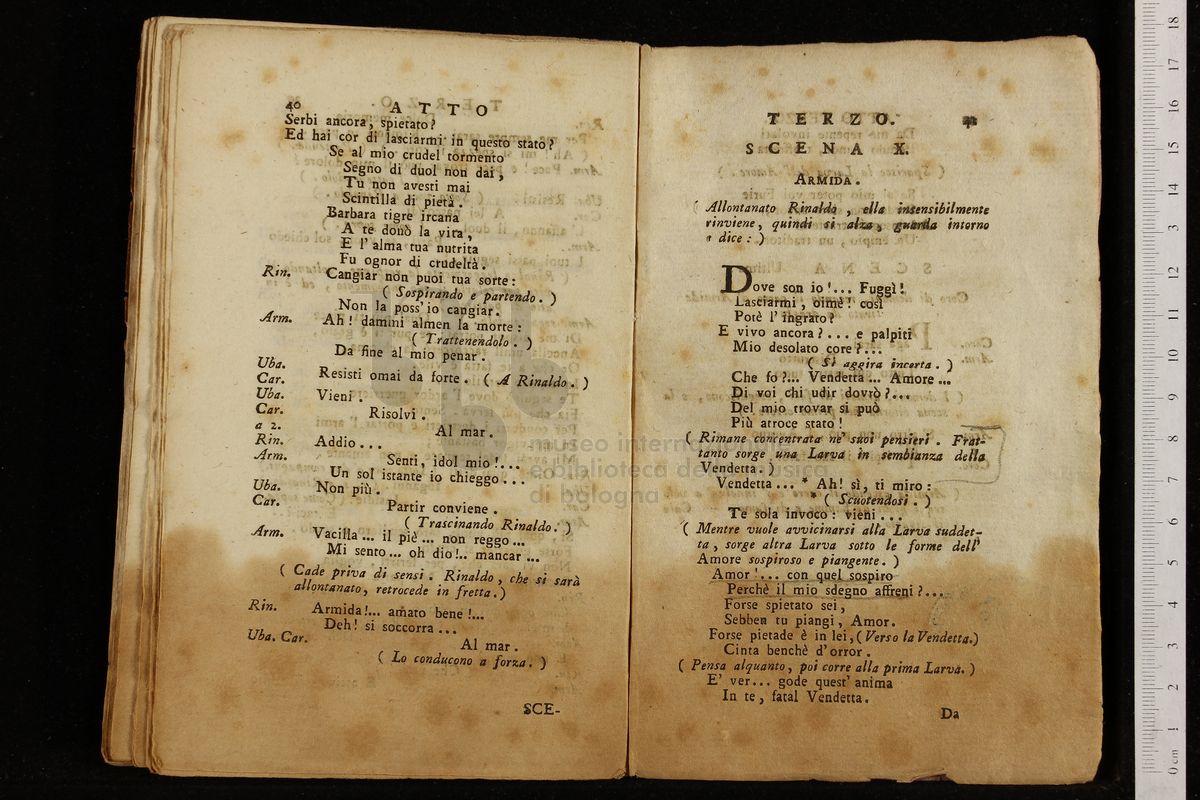 40 ATTO
Serbi ancora, spietato?
Ed hai cor di lasciarmi in questo stato?
Se al mio crudel tormento
Segno di duol non dai,
Tu non avesti mai
Scintilla di pietà.
Barbara tigre ircana
A te donò la vita,
E l'alma tua nutrita
Fu ognor di crudeltà.
Rin. Cangiar non puoi tua sorte:
( Sospirando e partendo. )
Non la poss'io cangiar.
Arm. Ah! dammi almen la morte:
( Trattenendolo. )
Da fine al mio penar.
Uba.
Car. Resisti omai da forte. ( A Rinaldo. )
Uba. Vieni.
Car. Risolvi.
a 2. Al mar.
Rin. Addio...
Arm. Senti, idol mio!...
Un sol istante io chieggo...
Uba. Non più.
Car. Partir conviene.
( Trascinando Rinaldo. )
Arm. Vacilla... il piè... non reggo...
Mi sento... oh dio!.. mancar...
( Cade priva di sensi. Rinaldo, che si sarà
allontanato, retrocede in fretta.)
Rin. Armida!... amato bene!...
Deh! si soccorra...
Uba. Car. Al mar.
( Lo conducono a forza. )
SCE-
TERZO.
SCENA X.
ARMIDA.
( Allontanato Rinaldo, ella insensibilmente
rinviene, quindi si alza, guarda intorno
e dice: )
Dove son io!... Fuggì!
Lasciarmi, oimè! così
Potè l'ingrato?
E vivo ancora?... e palpiti
Mio desolato core?...
( Si aggira incerta. )
Che fo?... Vendetta... Amore...
Di voi chi udir dovrò?...
Del mio trovar si può
Più atroce stato!
( Rimane concentrata ne' suoi pensieri. Frat-
tanto sorge una Larva in sembianza della
Vendetta. )
Vendetta... * Ah! sì, ti miro:
* ( Scuotendosi. )
Te sola invoco: vieni...
( Mentre vuole avvicinarsi alla Larva suddet-
ta, sorge altra Larva sotto le forme dell'
Amore sospiroso e piangente. )
Amor!... con quel sospiro
Perchè il mio sdegno affreni?...
Forse spietato sei,
Sebben tu piangi, Amor.
Forse pietade è in lei, (Verso la Vendetta.)
Cinta benchè d'orror.
( Pensa alquanto, poi corre alla prima Larva. )
E' ver... gode quest'anima
In te, fatal Vendetta.
Da
museo internazionale
e biblioteca della musica
di bologna
0 cm 1 2 3 4 5 6 7 8 9 10 11 12 13 14 15 16 17 18